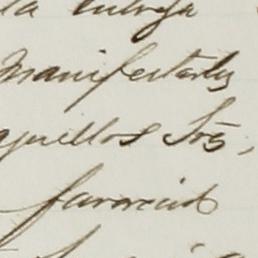 la entrega
manifestarles
aquellos Sres,
favorecid